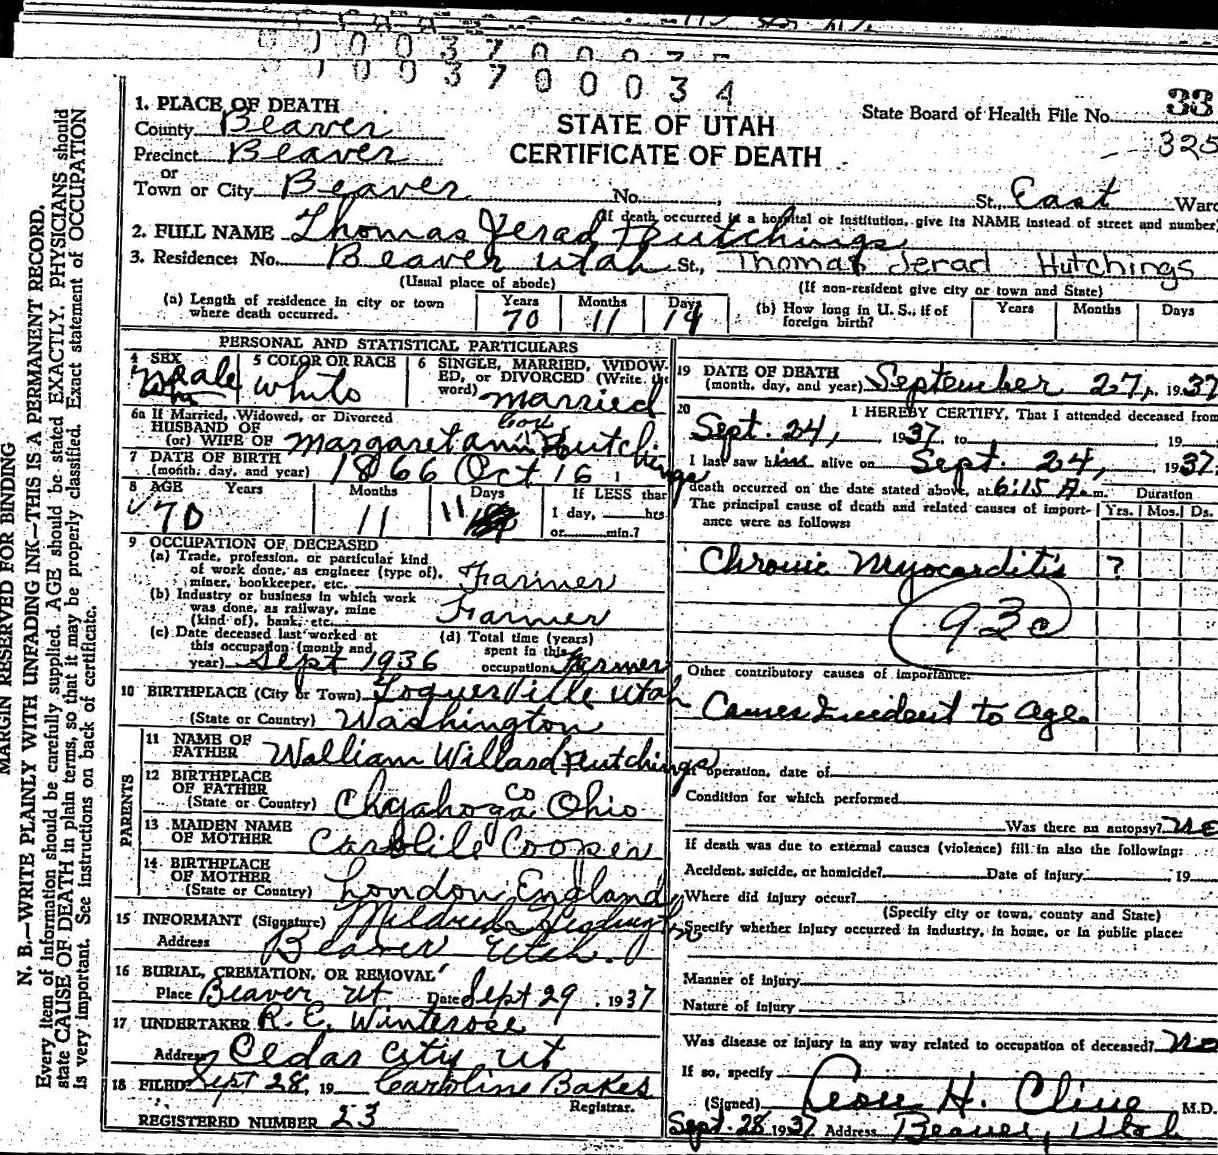 00037000
00037000034
1. PLACE OF DEATH
County Beaver
Precinct Beaver
or
Town or City Beaver No. St., East Ward
STATE OF UTAH
CERTIFICATE OF DEATH
State Board of Health File No. 33
325
(If death occurred in a hospital or institution, give its NAME instead of street and number)
2. FULL NAME Thomas Jerad Hutchings
3. Residence: No. Beaver Utah St., Thomas Jerad Hutchings
(Usual place of abode) (If non-resident give city or town and State)
(a) Length of residence in city or town where death occurred. Years 70 Months 11 Days 14
(b) How long in U. S., if of foreign birth? Years Months Days
PERSONAL AND STATISTICAL PARTICULARS
4 SEX Male
5 COLOR OR RACE White
6 SINGLE, MARRIED, WIDOWED, or DIVORCED (Write the word) Married
6a If Married, Widowed, or Divorced
HUSBAND OF
(or) WIFE OF Margaret ann Hutchings
7 DATE OF BIRTH
(month, day, and year) 1866 Oct 16
8 AGE Years Months Days If LESS than
70 11 11 1 day, hrs
or min.?
9 OCCUPATION OF DECEASED
(a) Trade, profession, or particular kind
of work done, as engineer (type of),
miner, bookkeeper, etc. Farmer
(b) Industry or business in which work
was done, as railway, mine
(kind of), bank, etc. Farmer
(c) Date deceased last worked at
this occupation (month and
year) Sept 1936
(d) Total time (years)
spent in this
occupation Farmer
10 BIRTHPLACE (City or Town) Toquerville Utah
(State or Country) Washington
PARENTS
11 NAME OF
FATHER Walliam Willard Hutchings
12 BIRTHPLACE
OF FATHER
(State or Country) Chyahoga co Ohio
13 MAIDEN NAME
OF MOTHER Cooper
14 BIRTHPLACE
OF MOTHER
(State or Country) London England
15 INFORMANT (Signature) Mildred
Address Beaver Utah.
16 BURIAL, CREMATION, OR REMOVAL
Place Beaver Ut Date Sept 29, 1937
17 UNDERTAKER R. E. Winterose
Address Cedar City Ut
18 FILED Sept 28, 19 Caroline Bakes
Registrar.
REGISTERED NUMBER 23
19 DATE OF DEATH
(month, day, and year) September 27, 1937
20 I HEREBY CERTIFY, That I attended deceased from
Sept. 24, 1937, to , 19
I last saw him alive on Sept. 24, 1937;
death occurred on the date stated above, at 6:15 A. m.
The principal cause of death and related causes of importance were as follows:
Duration
Yrs. Mos. Ds.
Chronic Myocarditis ?
93c
Other contributory causes of importance:
Causes Incident to age.
If operation, date of
Condition for which performed
Was there an autopsy? No
If death was due to external causes (violence) fill in also the following:
Accident, suicide, or homicide? Date of injury , 19
Where did injury occur?
(Specify city or town, county and State)
Specify whether injury occurred in industry, in home, or in public place:
Manner of injury
Nature of injury
Was disease or injury in any way related to occupation of deceased? No
If so, specify
(Signed) H. Cline M.D.
Sept. 28 1937 Address Beaver, Utah
MARGIN RESERVED FOR BINDING
N. B.—WRITE PLAINLY WITH UNFADING INK—THIS IS A PERMANENT RECORD.
Every item of information should be carefully supplied. AGE should be stated EXACTLY. PHYSICIANS should
state CAUSE OF DEATH in plain terms, so that it may be properly classified. Exact statement of OCCUPATION
is very important. See instructions on back of certificate.